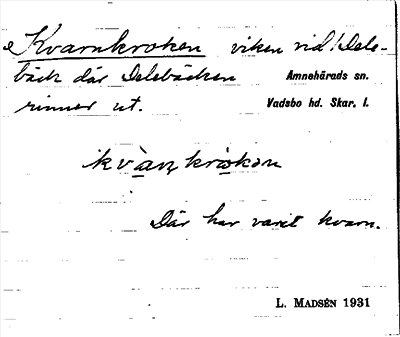 Kvarnkroken viken vid Dele-
bäck där Delebäcken
rinner ut.
Amnehärads sn.
Vadsbo hd. Skar. l.
kvàn̥kråkən
Där har varit kvarn.
L. MADSÉN 1931